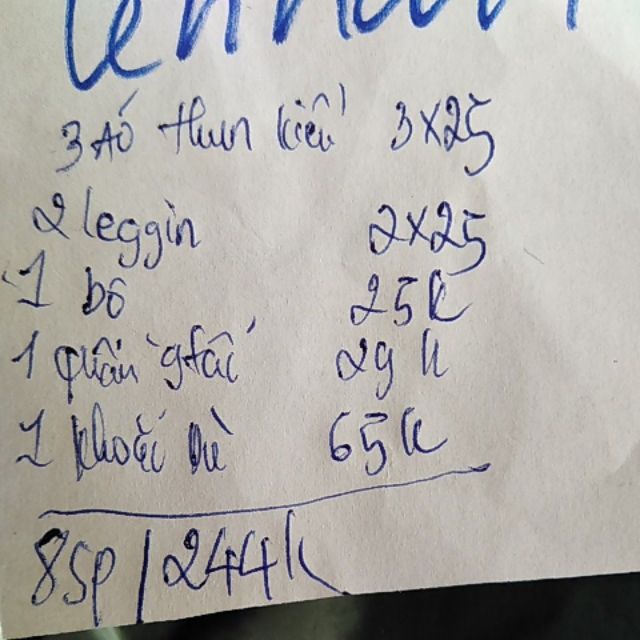 3 Áó thun kiểu 3x25
2 leggin 2x25
1 bô 25k
1 quần 29k
1 khoác 65k
8sp / 244k